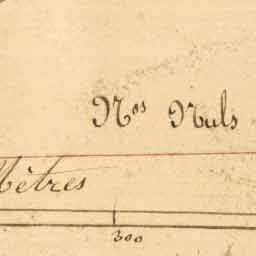 Nos Nuls
Mètres
300